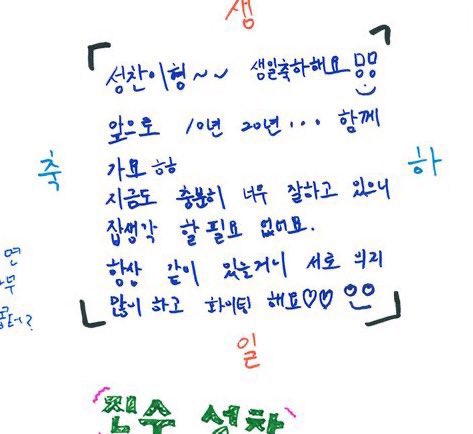 생
성찬이형~~ 생일축하해요
앞으로 10년 20년... 함께
가요 ㅎㅎ
지금도 충분히 너무 잘하고 있으니
잡생각 할 필요 없어요.
항상 같이 있을거니 서로 의리
많이 하고 화이팅 해요♡♡
축
하
일
연